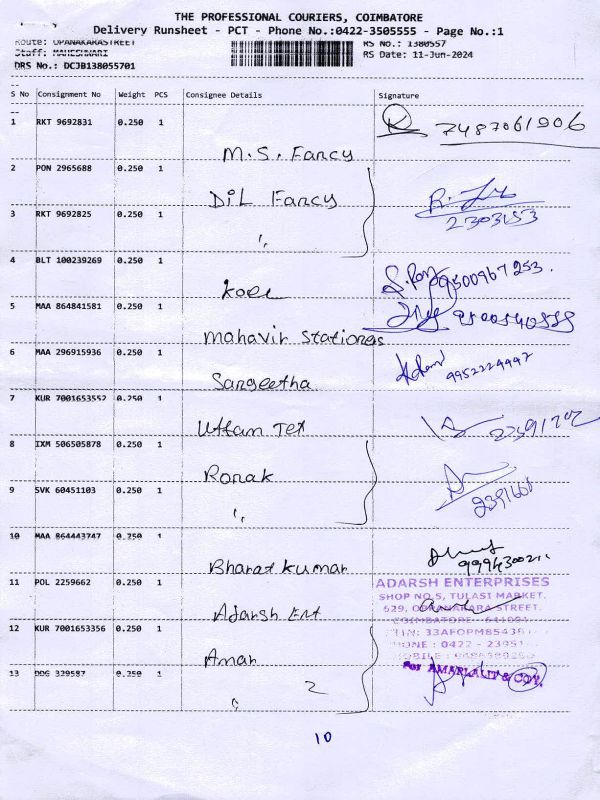 THE PROFESSIONAL COURIERS, COIMBATORE
Delivery Runsheet - PCT - Phone No.:0422-3505555 - Page No.:1
Route: OPANAKARASTREET RS No.: 1380557
Staff: MAHESHWARI RS Date: 11-Jun-2024
DRS No.: DCJB138055701
S No Consignment No Weight PCS Consignee Details Signature
1 RKT 9692831 0.250 1 M.S. Fancy 7487061906
2 PON 2965688 0.250 1 Dil Fancy
3 RKT 9692825 0.250 1 " 2303153
4 BLT 100239269 0.250 1 9500967253.
5 MAA 864841581 0.250 1 Mahavir Stationes
6 MAA 296915936 0.250 1 Sangeetha 9952224997
7 KUR 7001653552 0.250 1 Uttam Tex
8 IXM 506505878 0.250 1 Ronak
9 SVK 60451103 0.250 1 "
10 MAA 864443747 0.250 1 Bharat Kumar
11 POL 2259662 0.250 1 Adarsh Ent
ADARSH ENTERPRISES
SHOP NO.5, TULASI MARKET,
629, OPPANAKARA STREET.
12 KUR 7001653356 0.250 1 Aman
13 DDG 329587 0.250 1 " 2
For AMARLALIT & COY.
10